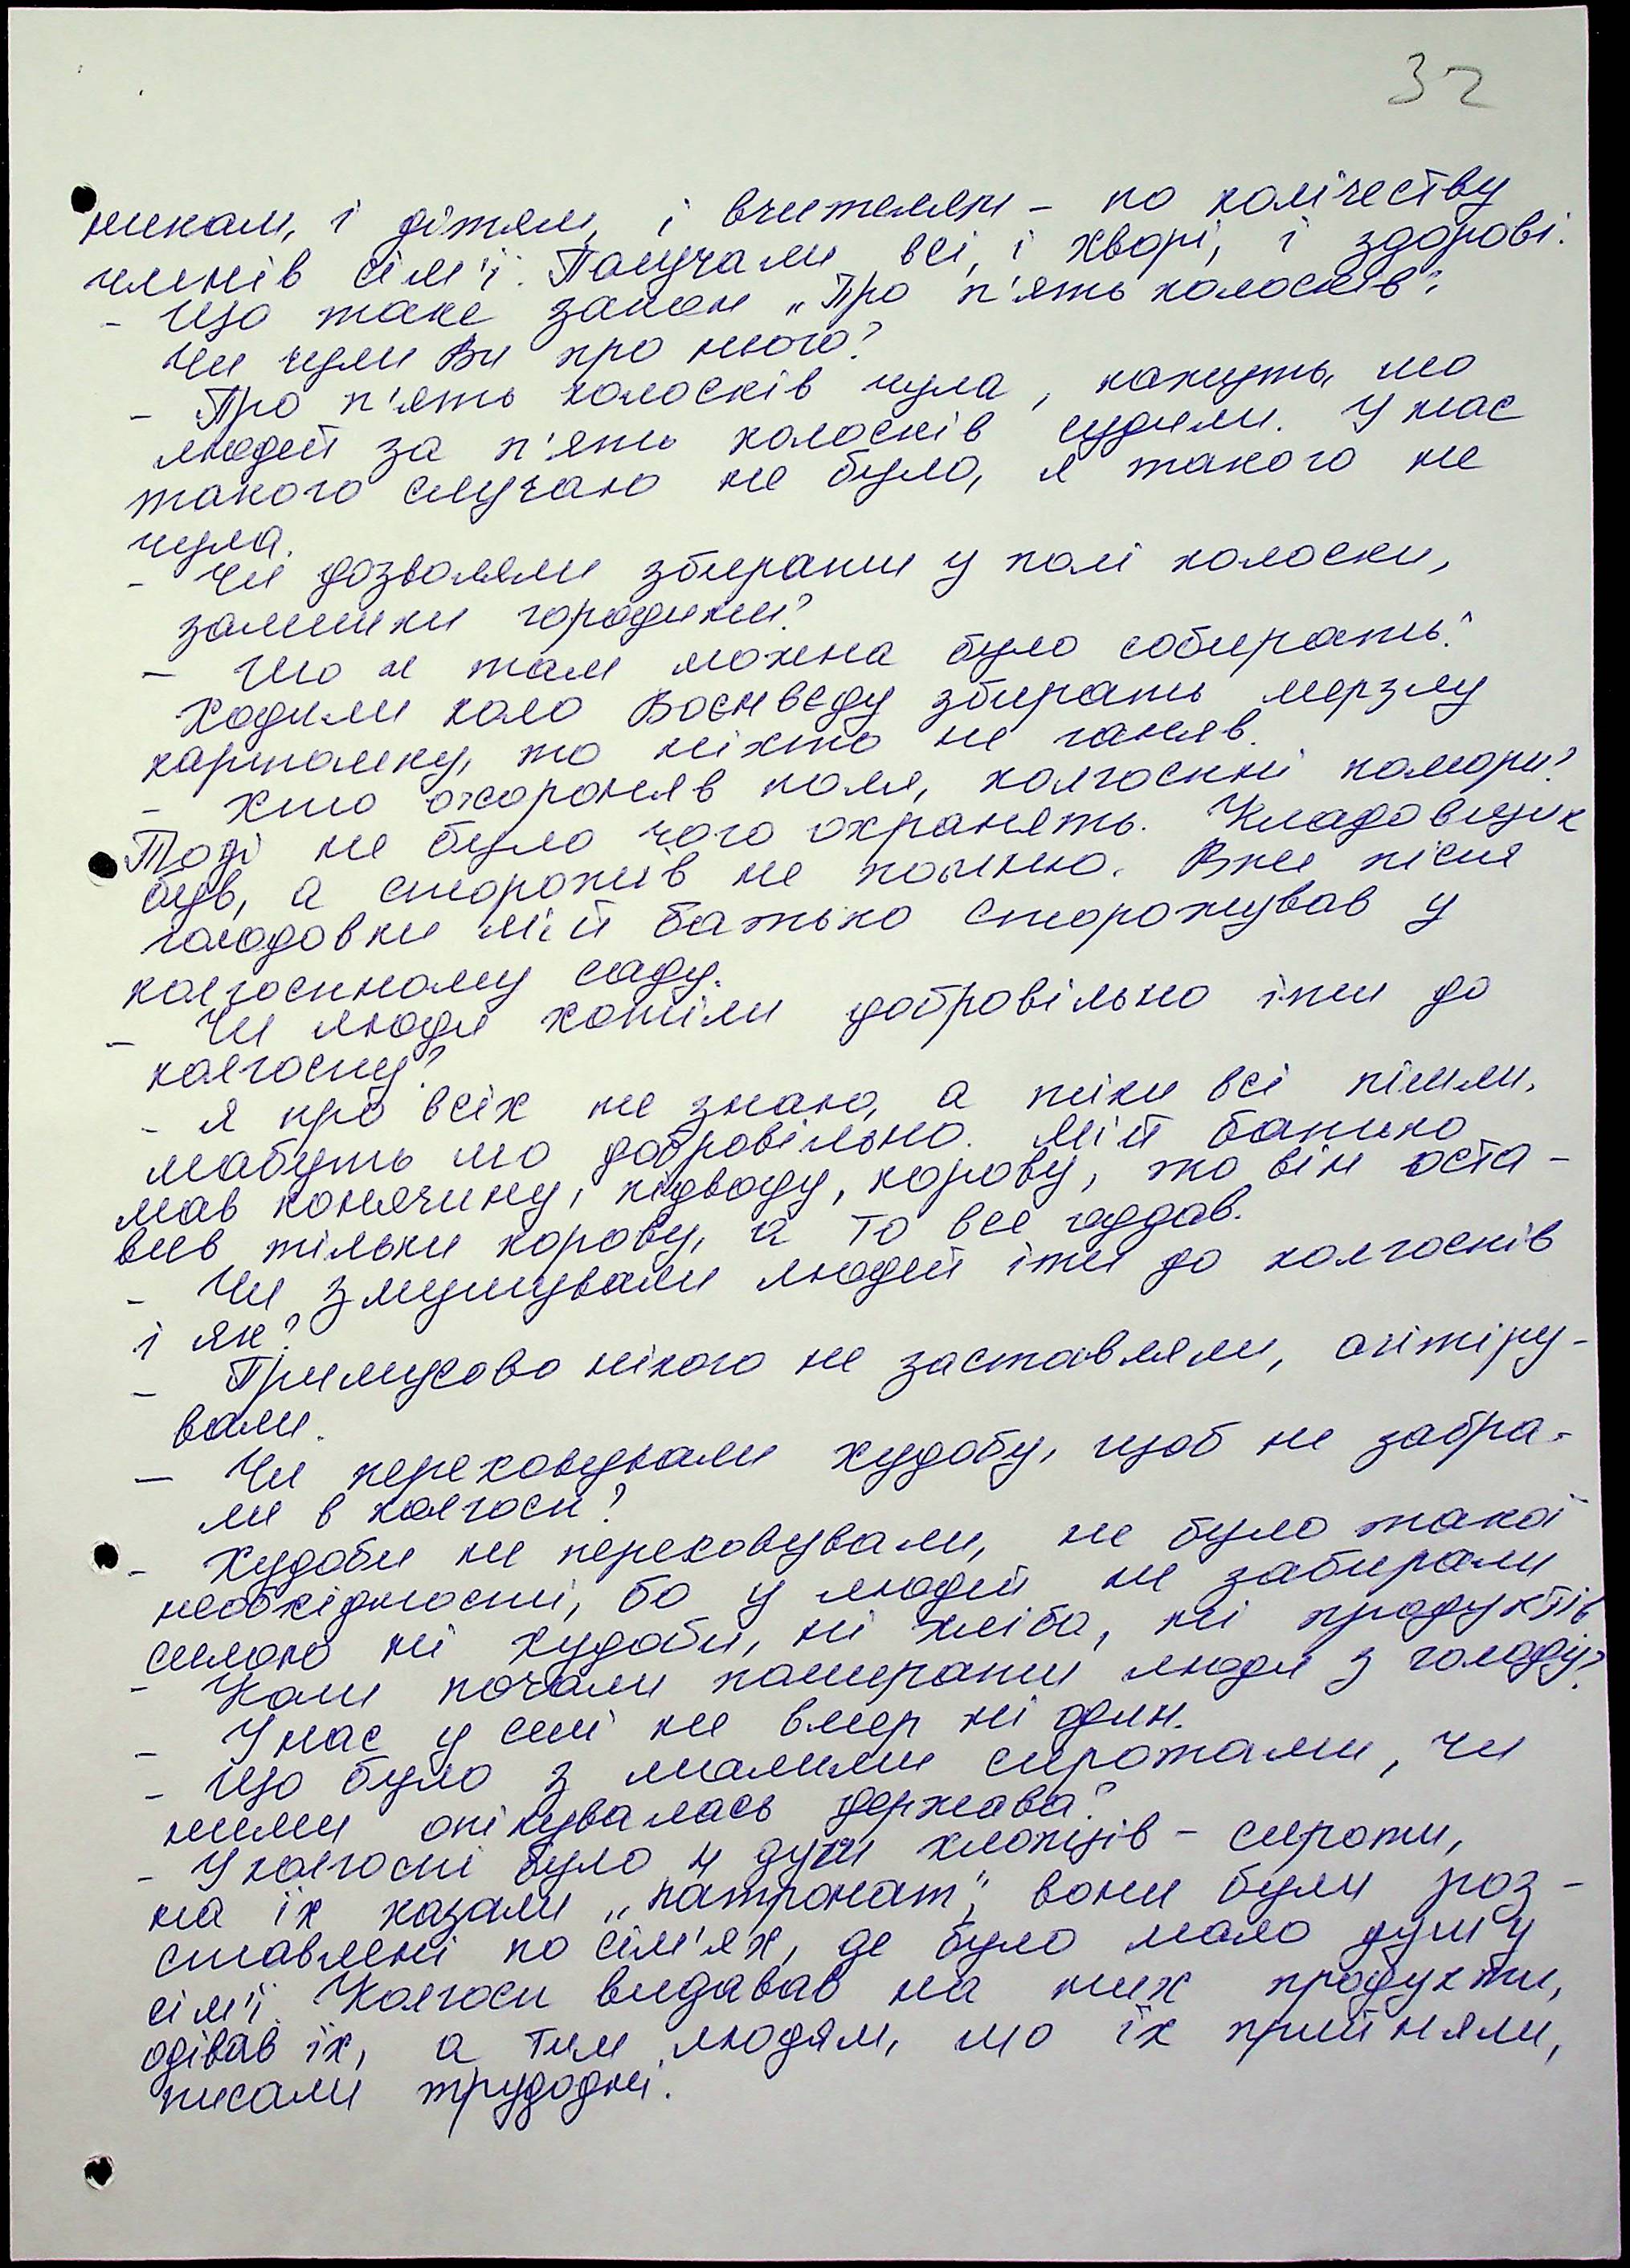 32
никам, і дітям, і вчителям - по колічеству
членів сім'ї. Получали всі, і хворі, і здорові.
- Що таке закон „Про п'ять колосків",
чи чули Ви про нього?
- Про п'ять колосків чула, кажуть, шо
людей за п'ять колосків судили. У нас
такого случаю не було, я такого не
чула.
- Чи дозволяли збирати у полі колоски,
залишки городини?
- Шо ж там можна було собирать?
Ходили коло Воєнведу збирать мерзлу
картоплю, то ніхто не ганяв.
- Хто охороняв поля, колгоспні комори?
Тоді не було чого охранять. Кладовщик
був, а сторожів не помню. Вже після
голодовки мій батько сторожував у
колгоспному саду.
- Чи люди хотіли добровільно іти до
колгоспу?
- Я про всіх не знаю, а тіки всі пішли,
мабуть шо добровільно. Мій батько
мав конячину, підводу, корову, то він оста-
вив тільки корову, а то все оддав.
- Чи змушували людей іти до колгоспів
і як?
- Примусово нікого не заставляли, агітіру-
вали.
- Чи переховували худобу, щоб не забра-
ли в колгосп?
- Худоби не переховували, не було такої
необхідності, бо у людей не забирали
силою ні худоби, ні хліба, ні продуктів
- Коли почали помирати люди з голоду?
- У нас у селі не вмер ні один.
- Що було з малими сиротами, чи
ними опікувалась держава?
- У колгоспі було 4 душі хлопців - сироти,
на їх казали „патронат", вони були роз-
ставлені по сім'ях, де було мало душ у
сім'ї. Колгосп видавав на них продукти,
одівав їх, а тим людям, шо їх прийняли,
писали трудодні.